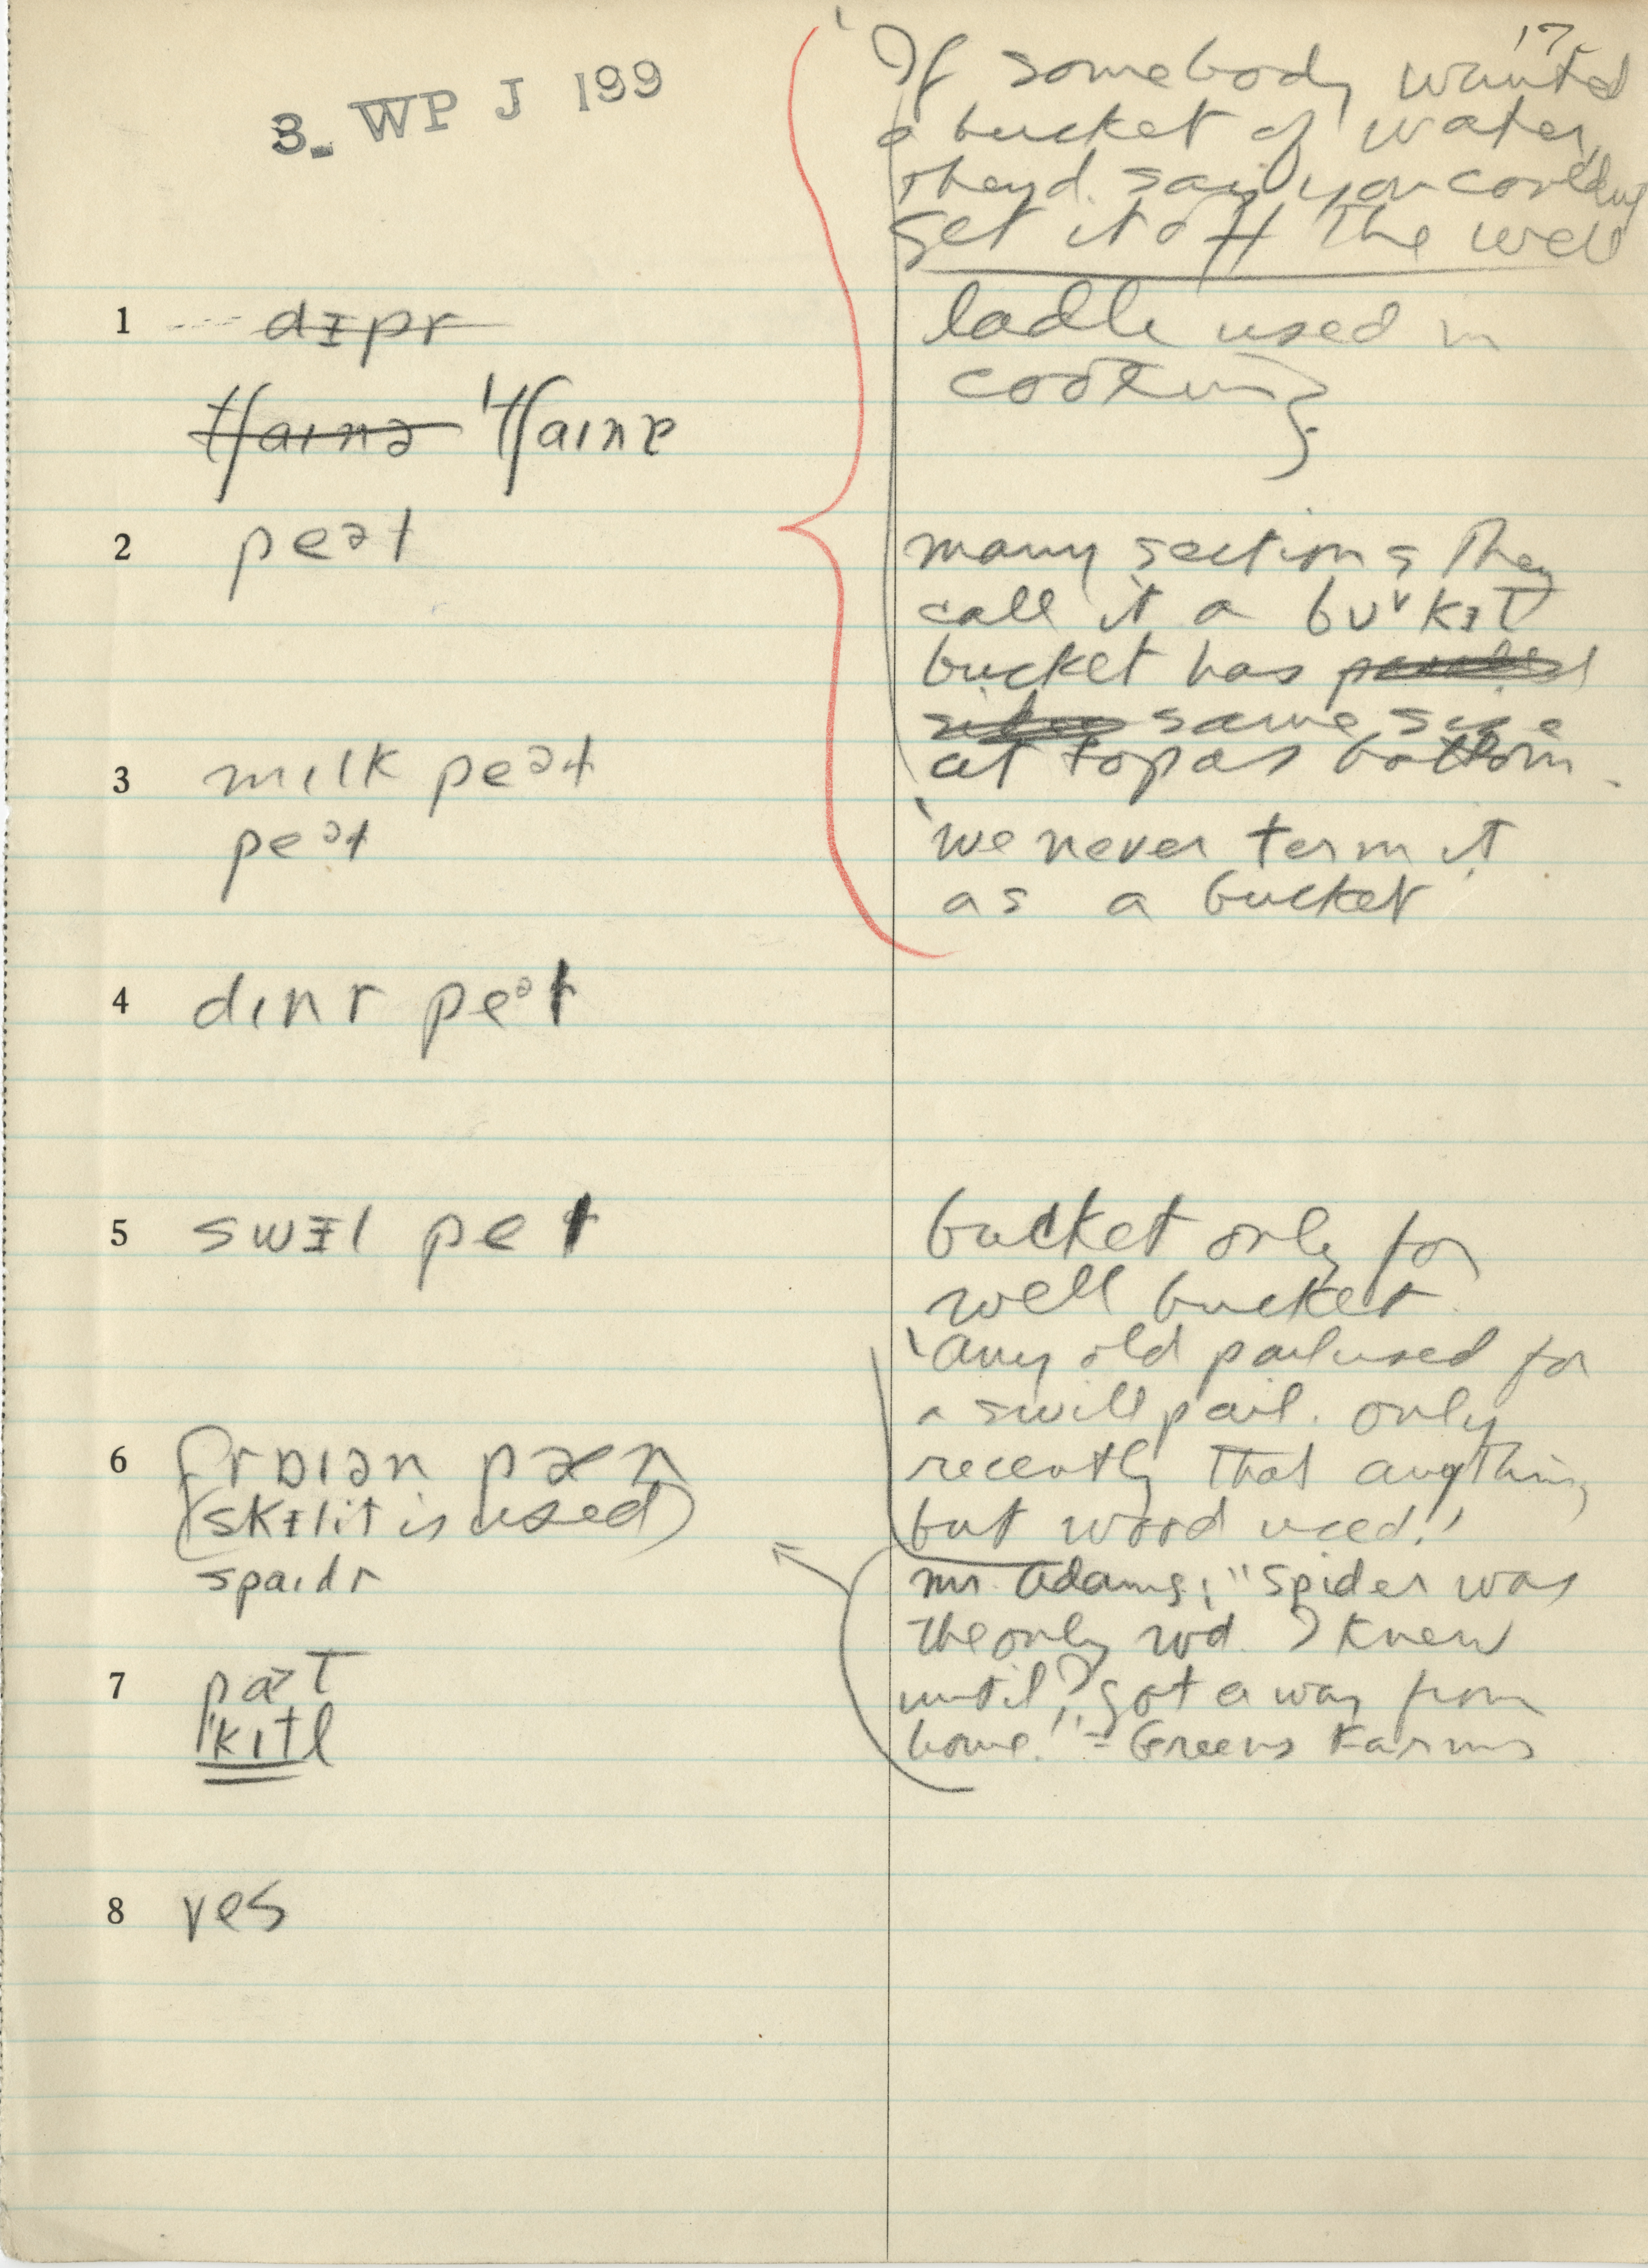 3. WP J 199
17
'If somebody wanted
a bucket of water,
theyd. say you couldnt
get it off the well
1 dɪpr
ladle used in
cooking
tʃainə 'tʃainɐ
2 peət
many sections they
call it a
bucket has
same size
at top as bottom.
3 mɪlk peəɫ
peəɫ
'we never term it
as a bucket'
4 dɪnr peəɫ
5 swɪl peɫ
bucket only for
well bucket.
'Any old pail used for
a swill pail. only
recently that anything
but wood used!'
6 pæn
(skɪlit is used)
spaɪdr
Mr. Adams: "Spider was
the only wd. I knew
until I got away from
home!" = Greens Farms
7
kɪtl
8 yes